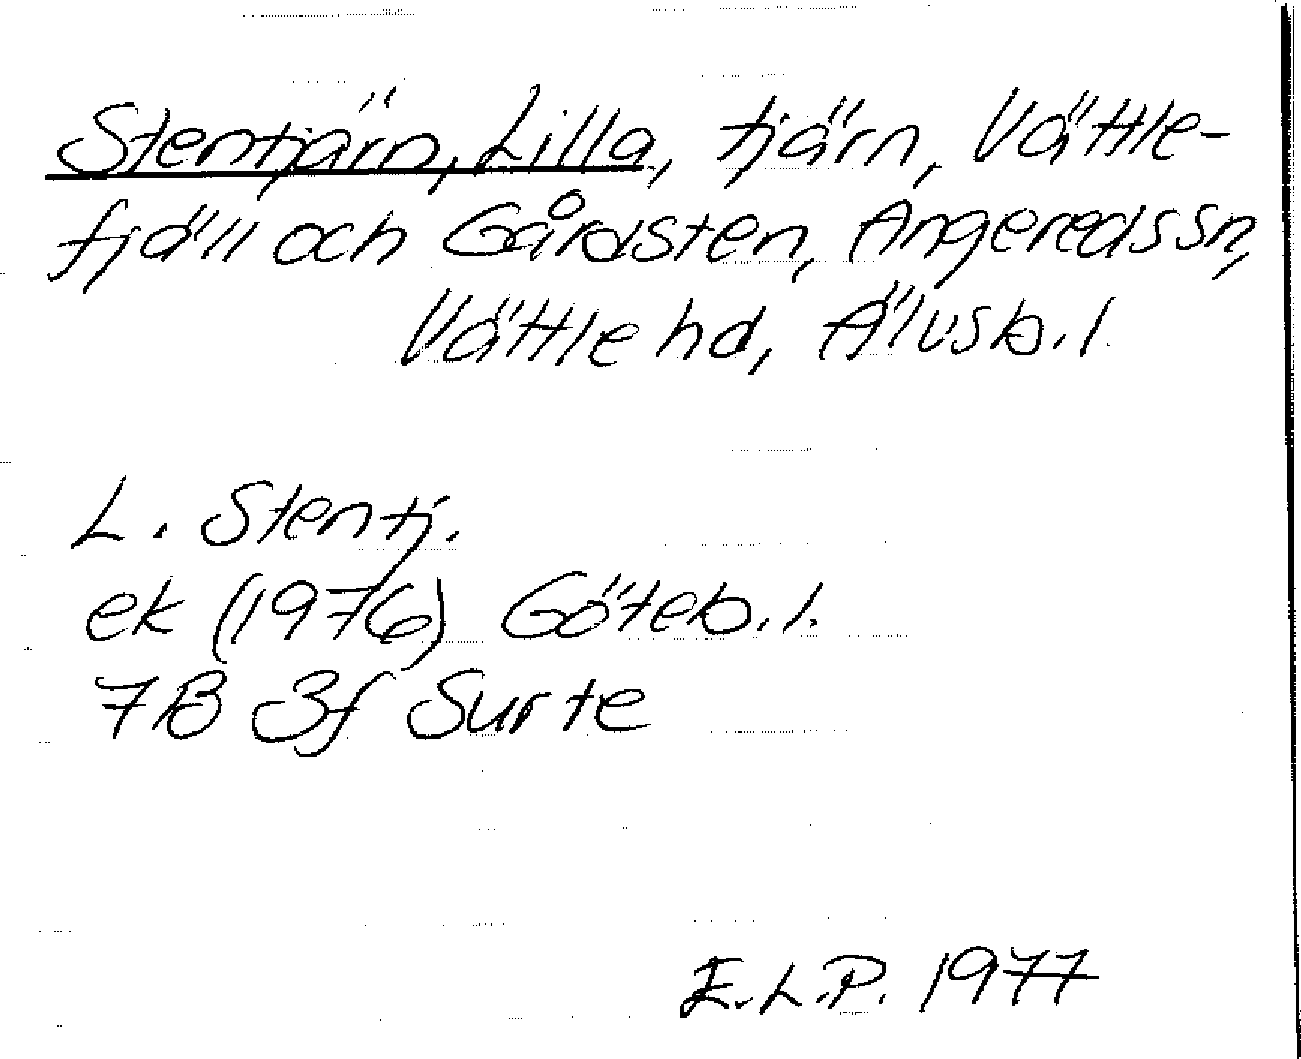 Stentjärn, Lilla, tjärn, Vättle-
fjäll och Gårdsten, Angereds sn,
Vättle hd, Älvsb. l.
L. Stentj.
ek (1976) Göteb. l.
7B 3f Surte
E.L.P. 1977